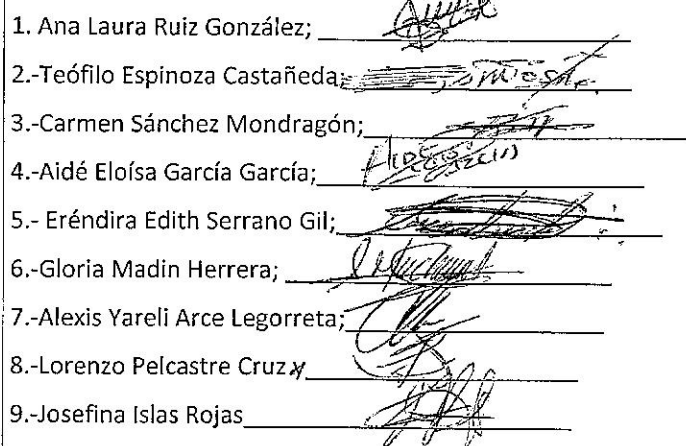 1. Ana Laura Ruiz González;
2.-Teófilo Espinoza Castañeda;
3.-Carmen Sánchez Mondragón;
4.-Aidé Eloísa García García;
5.- Eréndira Edith Serrano Gil;
6.-Gloria Madin Herrera;
7.-Alexis Yareli Arce Legorreta;
8.-Lorenzo Pelcastre Cruz
9.-Josefina Islas Rojas